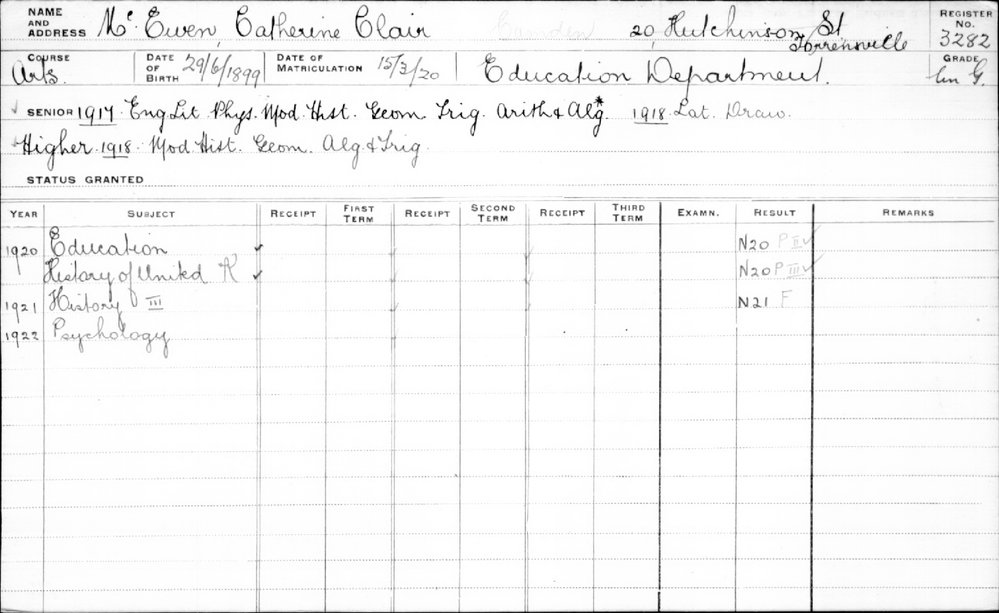 NAME AND ADDRESS Mc Ewen, Catherine Clair Camden 20, Hutchinson St Torrensville REGISTER NO. 3282
COURSE Arts. DATE OF BIRTH 29/6/1899 DATE OF MATRICULATION 15/3/20 Education Department. GRADE
SENIOR 1917 Eng Lit Phys. Mod. Hist. Geom. Trig. Arith & Alg* 1918 Lat. Draw.
Higher 1918 Mod Hist. Geom. Alg & Trig.
STATUS GRANTED
YEAR SUBJECT RECEIPT FIRST TERM RECEIPT SECOND TERM RECEIPT THIRD TERM EXAMN. RESULT REMARKS
1920 Education ✓ ✓ ✓ N20 P II ✓
History of United K ✓ ✓ ✓ N20 P III ✓
1921 History III ✓ ✓ N21 F
1922 Psychology